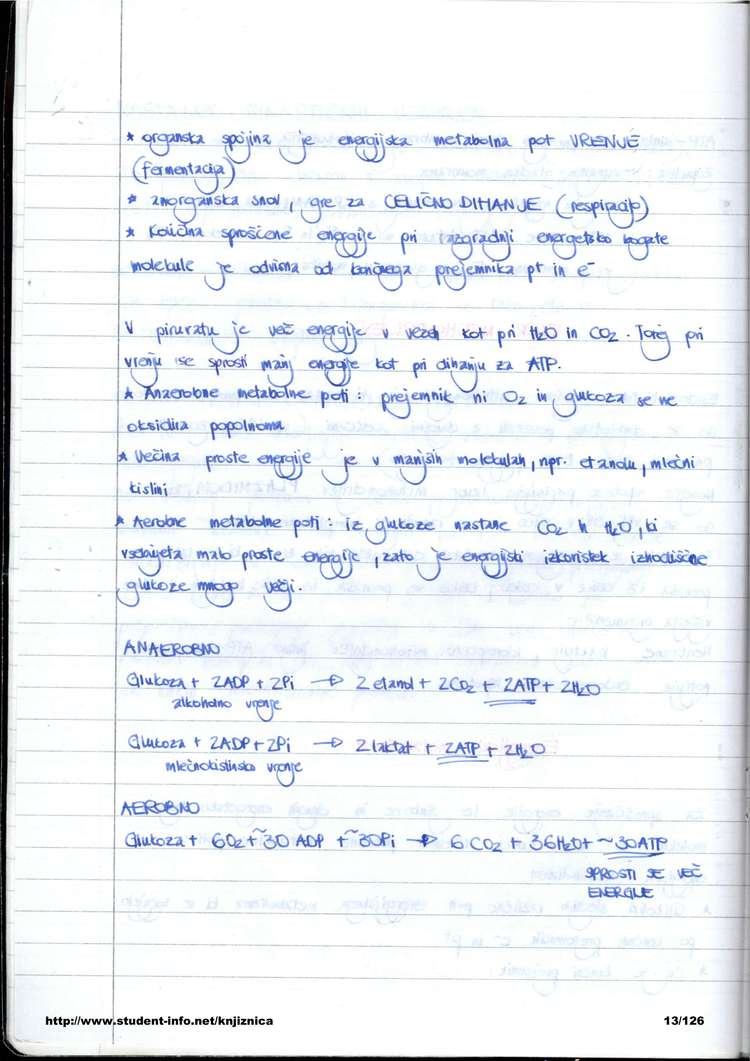 * organska spojina je energijska metabolna pot VRENJE
(fermentacija)
* anorganska snov, gre za CELIČNO DIHANJE (respiracijo)
* Količina sproščene energije pri razgradnji energetsko bogate
molekule je odvisna od končnega prejemnika p+ in e-
V piruvatu je več energije v vezeh kot pri H2O in CO2. Torej pri
vrenju se sprosti manj energije kot pri dihanju za ATP.
* Anaerobne metabolne poti: prejemnik ni O2 in glukoza se ne
oksidira popolnoma
* Večina proste energije je v manjših molekulah, npr. etanolu, mlečni
kislini
* Aerobne metabolne poti: iz glukoze nastane CO2 in H2O, ki
vsebujeta malo proste energije, zato je energijski izkoristek izhodiščne
glukoze mnogo večji.
ANAEROBNO
Glukoza + 2ADP + 2Pi → 2 etanol + 2CO2 + 2ATP + 2H2O
alkoholno vrenje
Glukoza + 2ADP + 2Pi → 2 laktat + 2ATP + 2H2O
mlečnokislinsko vrenje
AEROBNO
Glukoza + 6O2 + ~30 ADP + ~30Pi → 6 CO2 + 36H2O + ~30ATP
SPROSTI SE VEČ
ENERGIJE
http://www.student-info.net/knjiznica 13/126